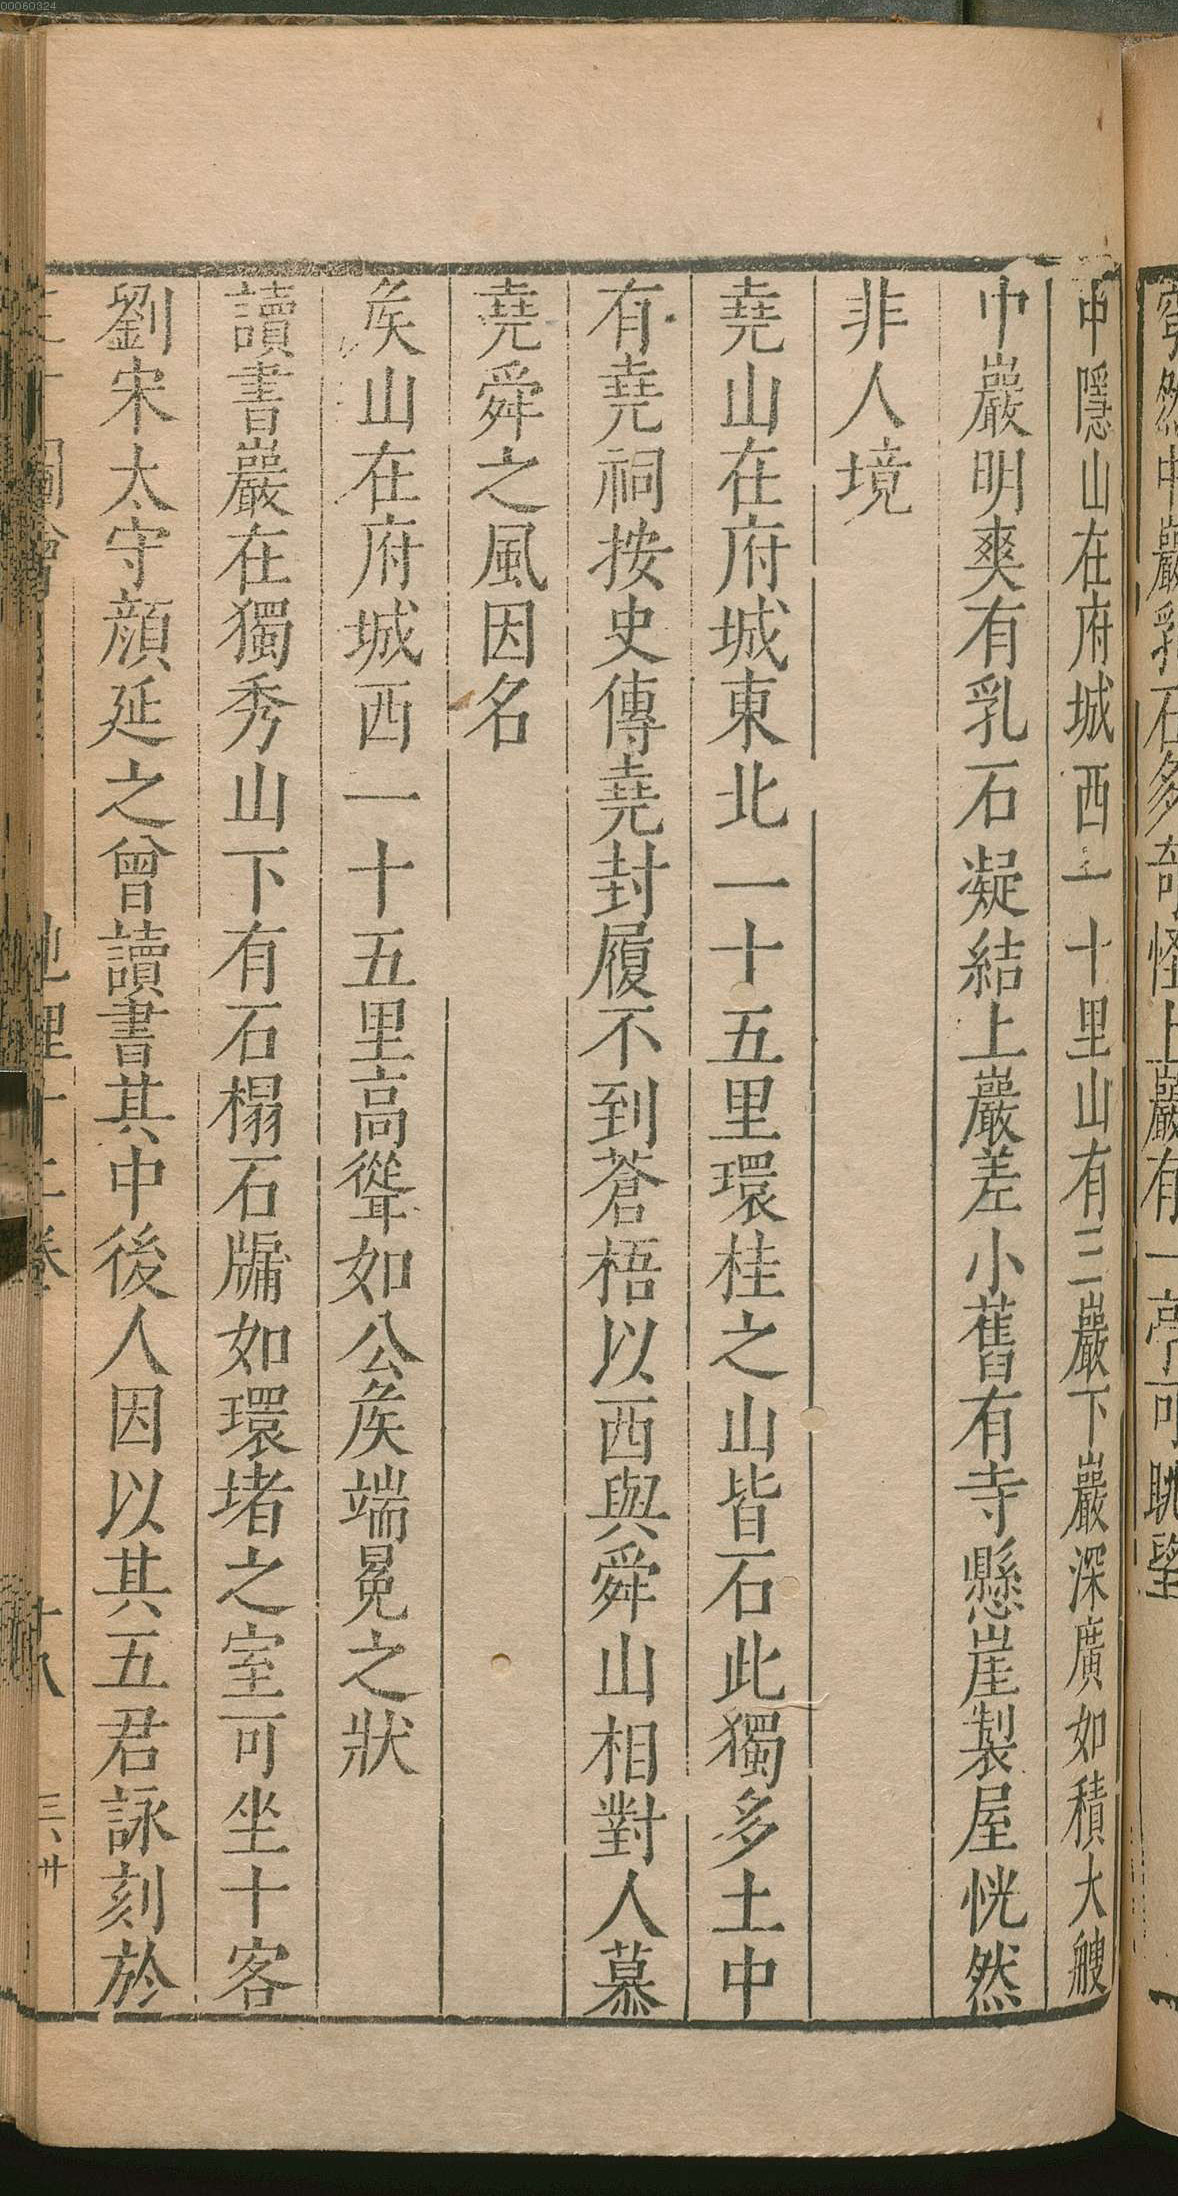 00060324
然中巖乳石多奇怪上巖有一亭可眺望
中隱山在府城西一十里山有三巖下巖深廣如積大艘
中巖明爽有乳石凝結上巖差小舊有寺懸崖製屋恍然
非人境
堯山在府城東北一十五里環桂之山皆石此獨多土中
有堯祠按史傳堯封履不到蒼梧以西與舜山相對人慕
堯舜之風因名
矦山在府城西一十五里高聳如公矦端冕之狀
讀書巖在獨秀山下有石榻石牖如環堵之室可坐十客
劉宋太守顔延之曾讀書其中後人因以其五君詠刻於
圖會
地理十二卷
十八
三、廾